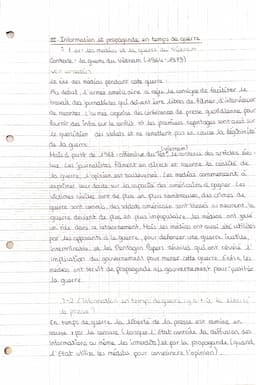 III - Information et propagande en temps de guerre
1 - les médias et la guerre du Vietnam
Contexte : la guerre du Vietnam (1964-1975)
Le rôle des médias pendant cette guerre
Au début, l'armée américaine a reçu la consigne de faciliter le
travail des journalistes qui doivent être libres de filmer, d'interviewer
de monter. L'armée organise des conférences de presse quotidiennes pour
fournir des infos sur le conflit et les premiers reportages sont axés sur
le quotidien des soldats et ne remettent pas en cause la légitimité
de la guerre.
Mais à partir de 1968 - offensive du Têt (Vietnam), le contenu des articles
Les journalistes filment en direct et montrent la réalité de
la guerre, l'opinion est bouleversée. Les médias commencent à
exprimer leur doute sur la capacité des américains à gagner. Les
victimes civiles sont de plus en plus nombreuses, des crimes de
guerre sont commis, des soldats américains sont blessés ou meurent, la
guerre devient de plus en plus impopulaire. Les médias ont joué
un rôle dans ce retournement. Mais les médias ont aussi été utilisés
par les opposants à la guerre, pour dénoncer une guerre inutile,
interminable, et les Pentagon Papers révélés qui ont révélé l'
implication du gouvernement pour mener cette guerre. Enfin, les
médias ont servit de propagande au gouvernement pour justifier
la guerre.
1-2 (Information en temps de guerre : la liberté
de presse ?
En temps de guerre la liberté de la presse est remise en
cause par la censure (lorsque l'État contrôle la diffusion des
informations ou même les interdits) et par la propagande (quand
l'État utilise les médias pour convaincre l'opinion).